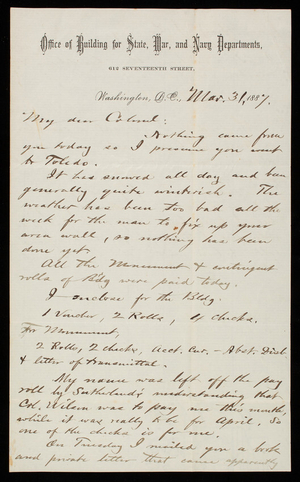 Office of Building for State, War, and Navy Departments,
612 SEVENTEENTH STREET,
Washington, D.C., Mar. 31, 1887.
My dear Colonel:
Nothing came from
you today so I presume you went
to Toledo.
It has snowed all day and been
generally quite wintrish. The
weather has been too bad all the
week for the man to fix up your
area wall, so nothing has been
done yet.
All the Monument & contingent
rolls of Bldg were paid today.
I enclose for the Bldg.
1 Voucher, 2 Rolls, 14 checks.
For Monument,
2 Rolls, 2 checks, Acct. Cur. - Abst. Disb
& letter of transmittal.
My name was left off the pay
roll by Sutherland's understanding that
Col. Wilson was to pay me this month,
while it was really to be for April. So
one of the checks is for me.
On Tuesday I mailed you a book
and private letter that came apparently